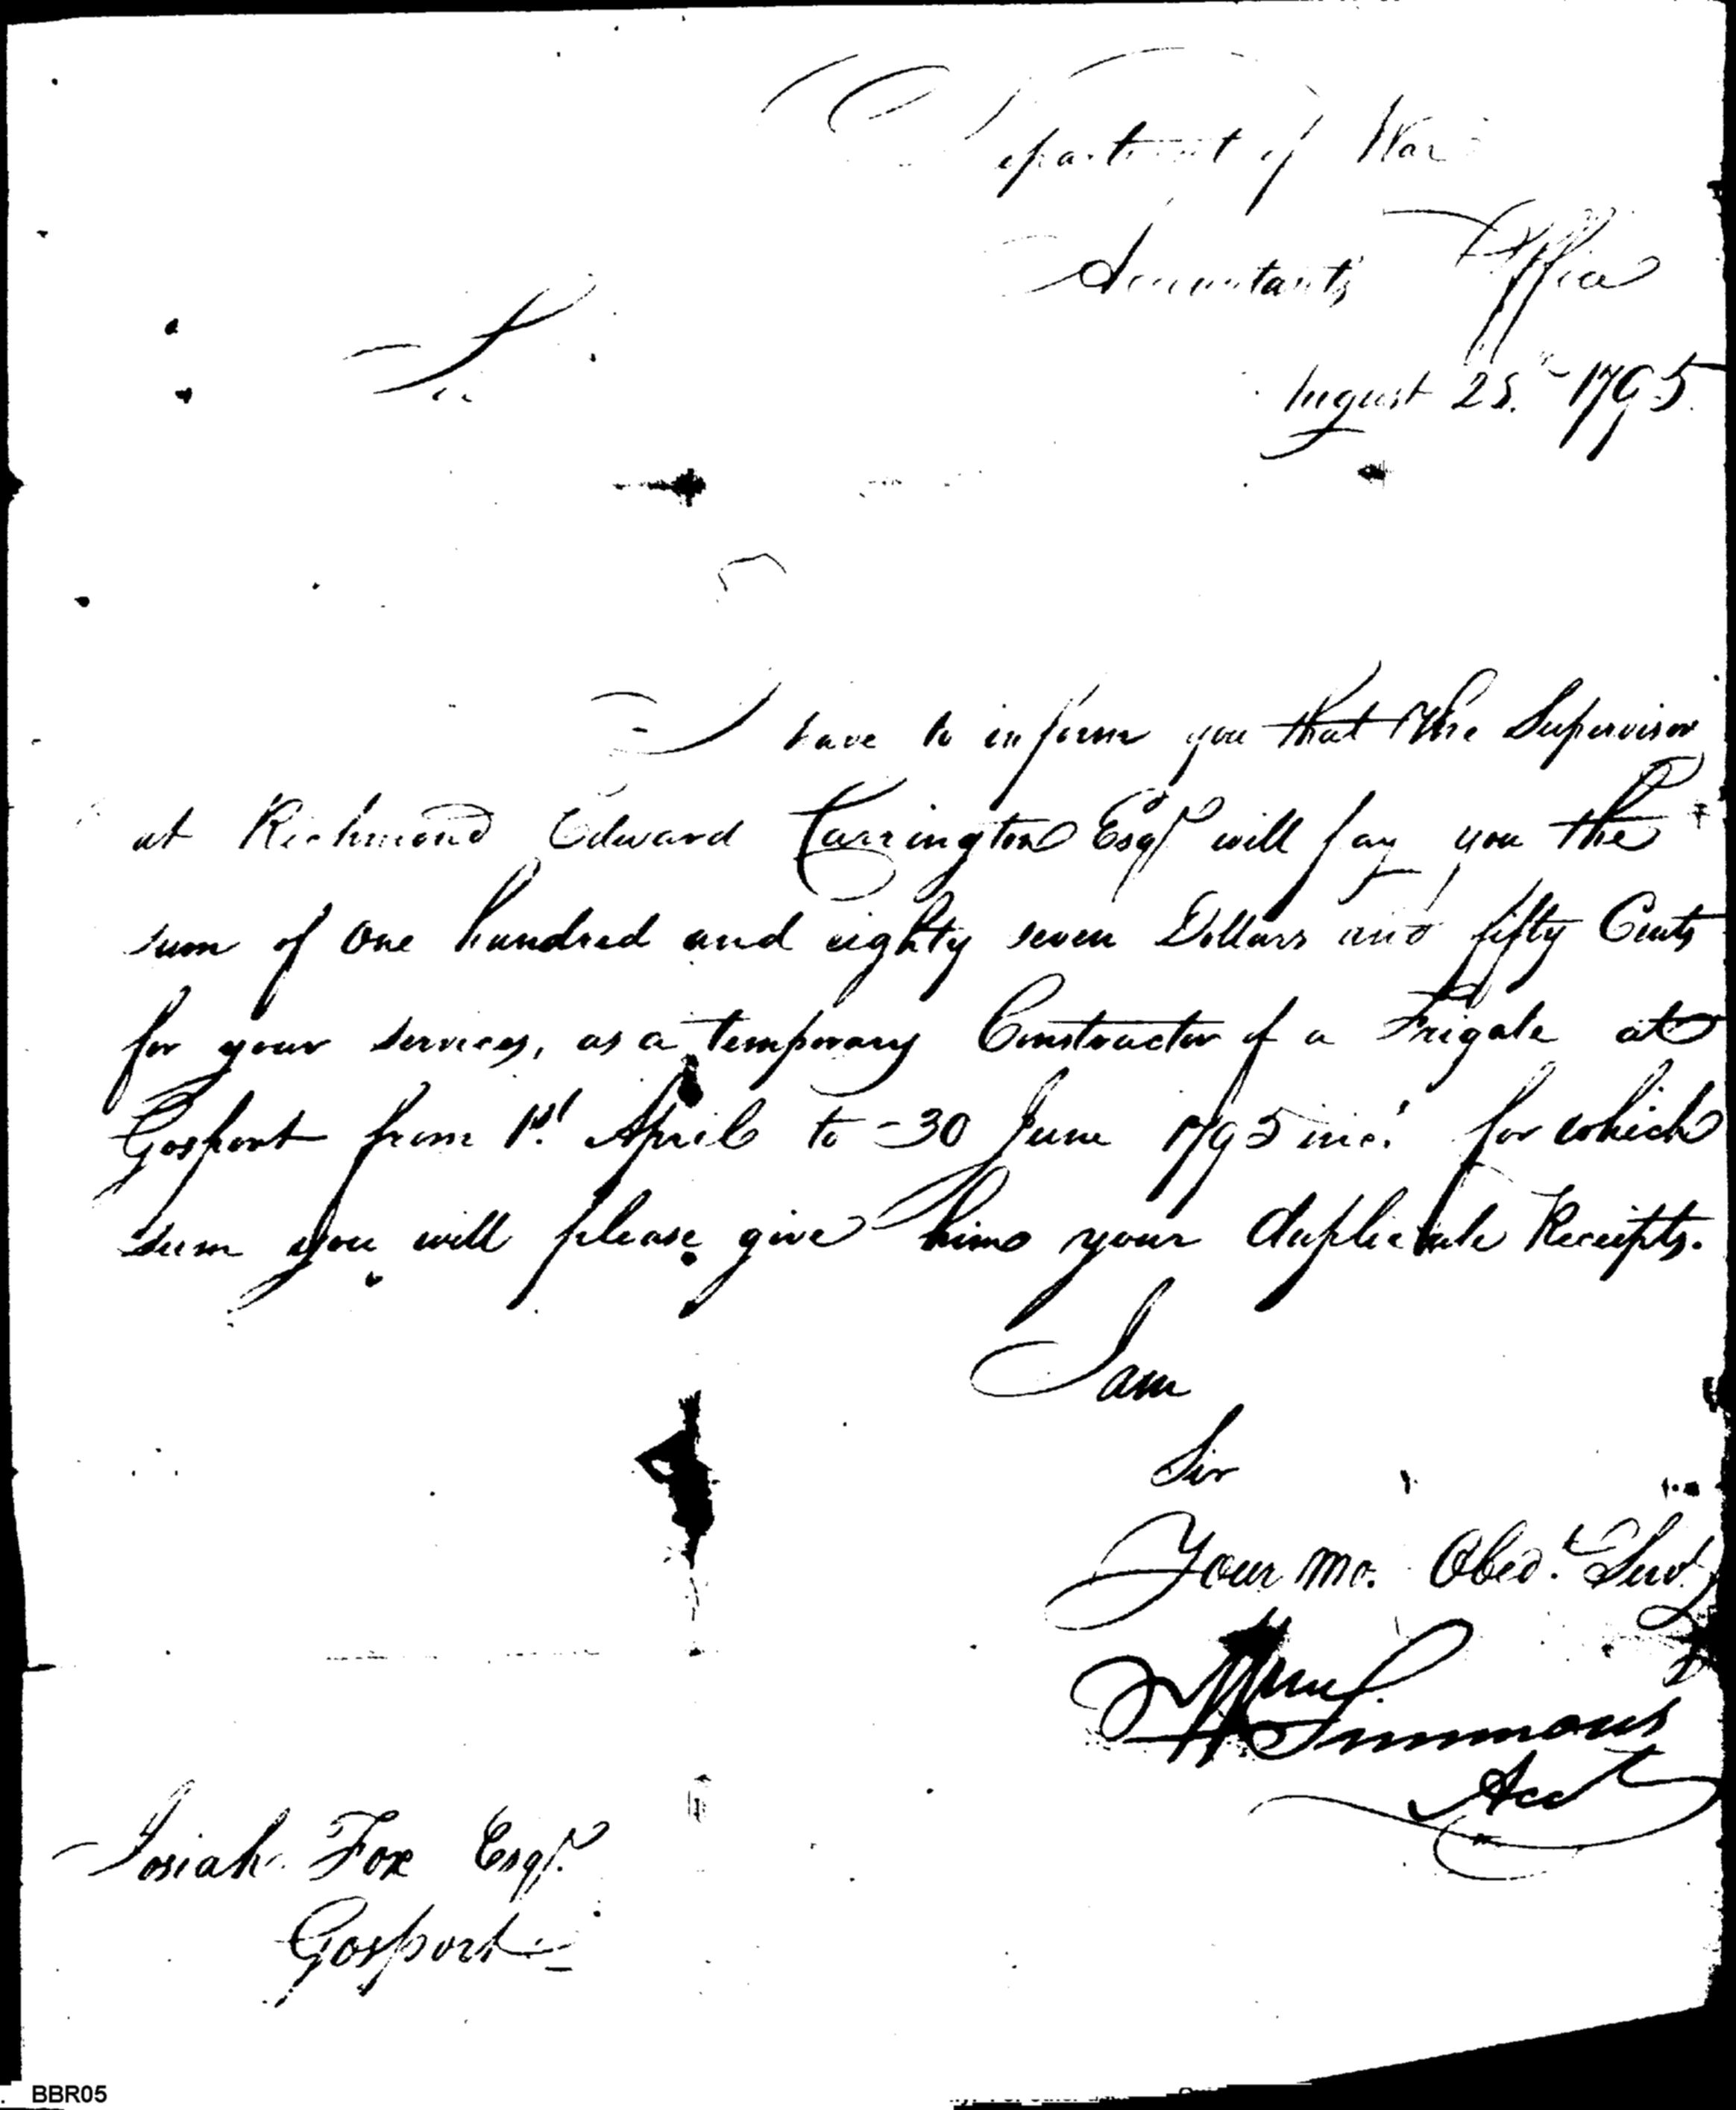 Department of War
Accountants Office
August 25.th 1795.
Sir
I have to inform you that the Supervisor
at Richmond Edward Carrington Esqr will pay you the
sum of one hundred and eighty seven Dollars and fifty Cents
for your services, as a temporary Constructor of a Frigate at
Gosport from 1st. April to 30 June 1795 inc.l for which
sum you will please give him your duplicate Receipts.
I am
Sir
Your mo. Obed.t Servt
Wm Simmons
Acct
Josiah Fox Esqr.
Gosport
BBR05